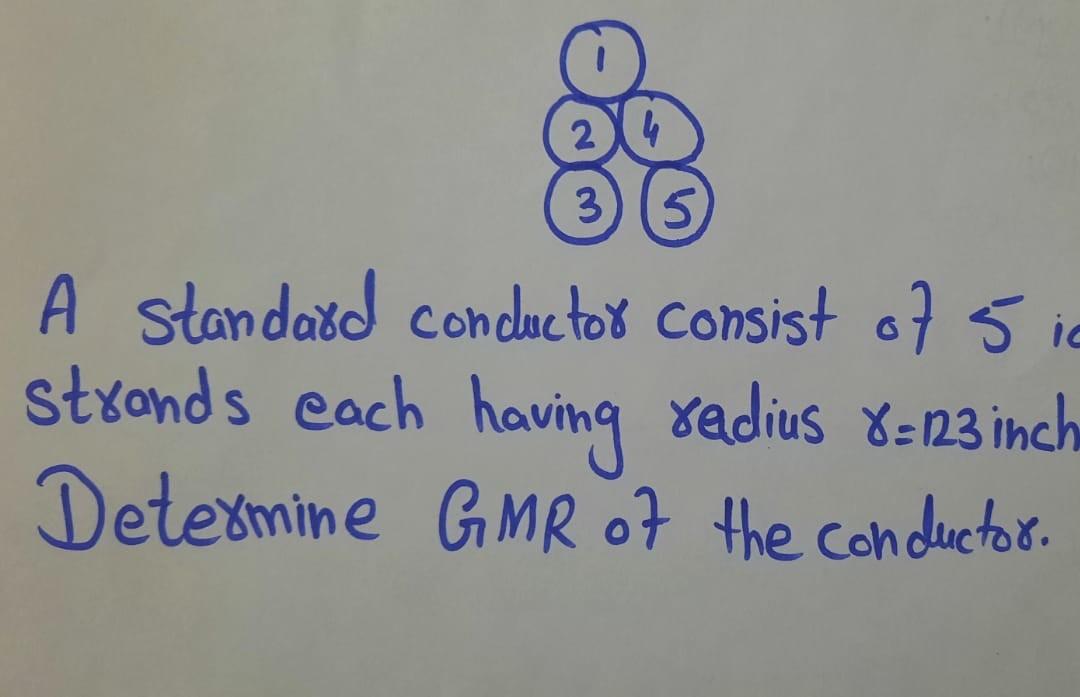 1
2 4
3 5
A standard conductor consist of 5 
strands each having radius r=123 inch
Determine GMR of the conductor.